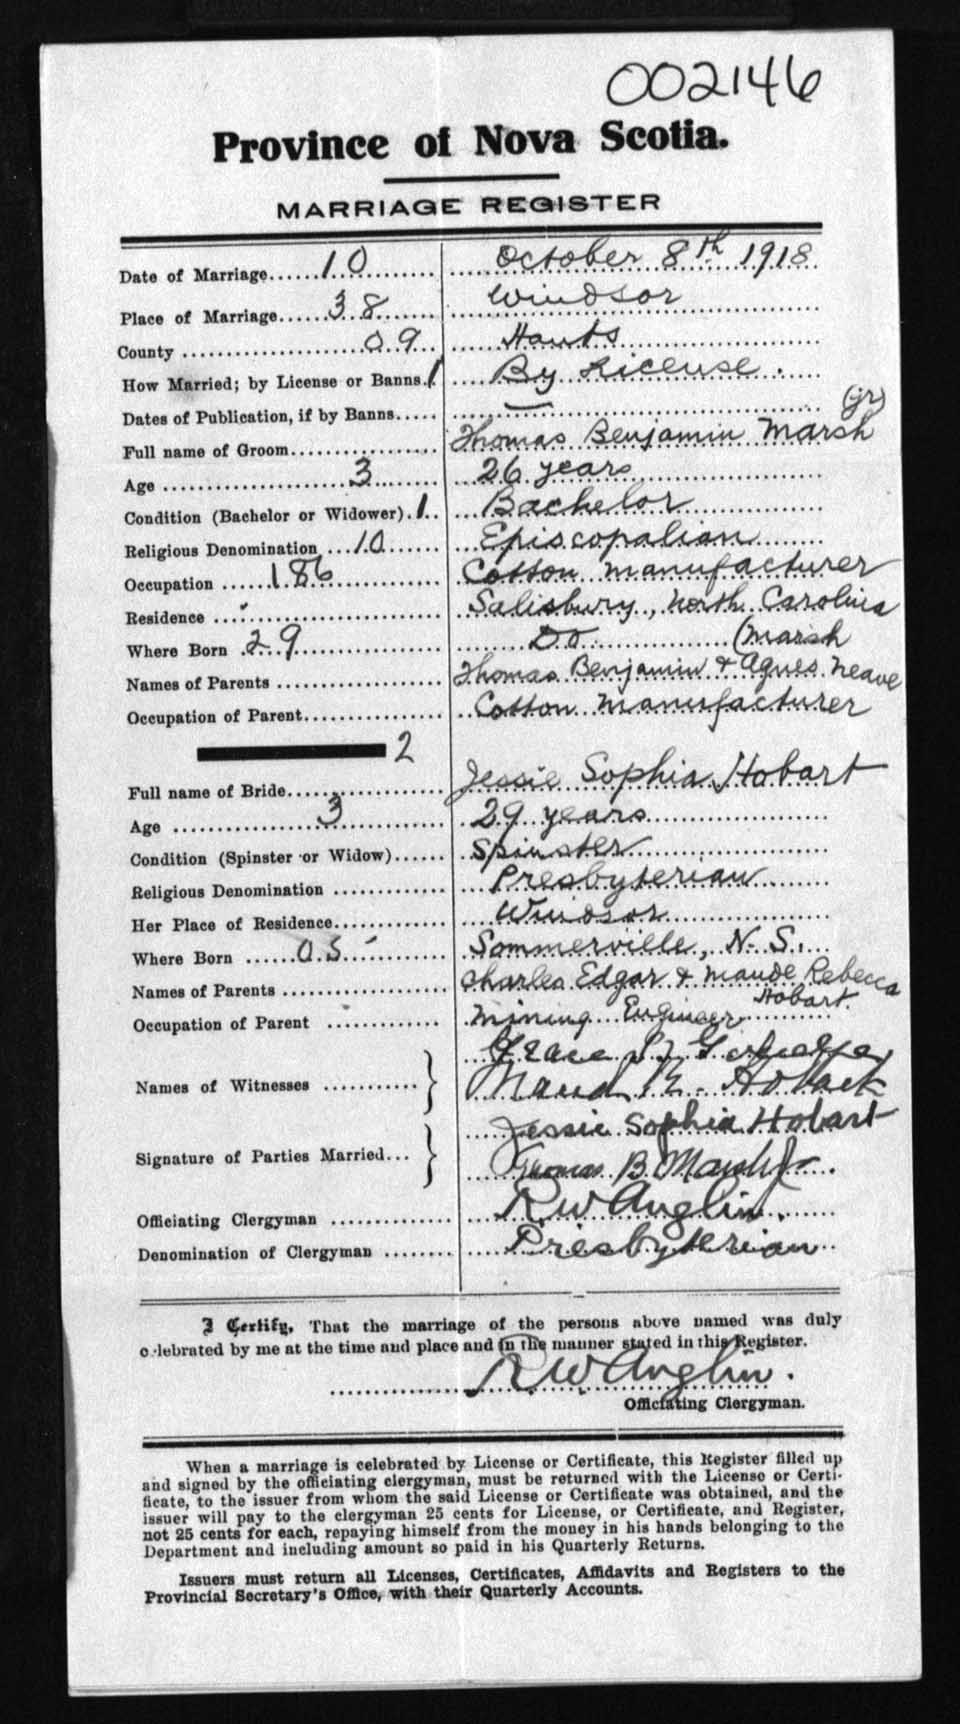 002146
Province of Nova Scotia.
MARRIAGE REGISTER
Date of Marriage......10.......... October 8th 1918
Place of Marriage......38....... Windsor
County ....................09... Hants
How Married; by License or Banns.1 By License.
Dates of Publication, if by Banns..... — (jr)
Full name of Groom................ Thomas Benjamin Marsh
Age ....................3........ 26 years
Condition (Bachelor or Widower).1.. Bachelor
Religious Denomination ...10...... Episcopalian
Occupation ......186............ Cotton Manufacturer
Residence ..................... Salisbury, North Carolina
Where Born .29................. Do (Marsh
Names of Parents ................. Thomas Benjamin & Agnes Neave
Occupation of Parent................ Cotton Manufacturer
2
Full name of Bride.................. Jessie Sophia Hobart
Age ..................3............ 29 years
Condition (Spinster or Widow)...... Spinster
Religious Denomination ............ Presbyterian
Her Place of Residence............. Windsor
Where Born ......05........ Sommerville, N. S.
Names of Parents ................. Charles Edgar & Maude Rebecca
Hobart
Occupation of Parent ............. Mining Engineer
Grace
Names of Witnesses ........... } Maud R. Hobart
Jessie Sophia Hobart
Signature of Parties Married... } Thomas B. Marsh Jr.
Officiating Clergyman .............. R W Anglin.
Denomination of Clergyman ........ Presbyterian
I Certify, That the marriage of the persons above named was duly
celebrated by me at the time and place and in the manner stated in this Register.
R W Anglin.
Officiating Clergyman.
When a marriage is celebrated by License or Certificate, this Register filled up
and signed by the officiating clergyman, must be returned with the License or Certi-
ficate, to the issuer from whom the said License or Certificate was obtained, and the
issuer will pay to the clergyman 25 cents for License, or Certificate, and Register,
not 25 cents for each, repaying himself from the money in his hands belonging to the
Department and including amount so paid in his Quarterly Returns.
Issuers must return all Licenses, Certificates, Affidavits and Registers to the
Provincial Secretary's Office, with their Quarterly Accounts.